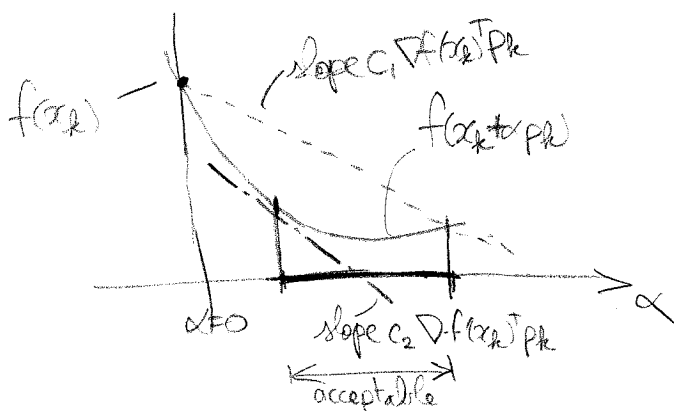 slope c₁ ∇f(xₖ)ᵀpₖ
f(xₖ)
f(xₖ+αpₖ)
α
α=0
slope c₂ ∇f(xₖ)ᵀpₖ
acceptable